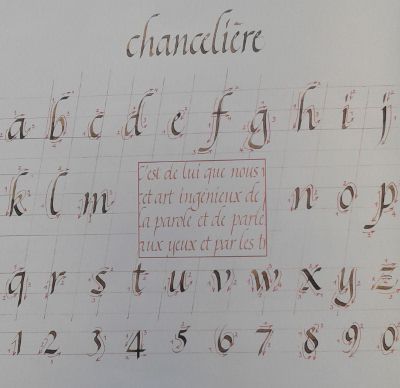 chancelière
a b c d e f g h i j
k l m n o p
C'est de lui que nous v
cet art ingénieux de
la parole et de parle
aux yeux et par les t
q r s t u v w x y z
1 2 3 4 5 6 7 8 9 0